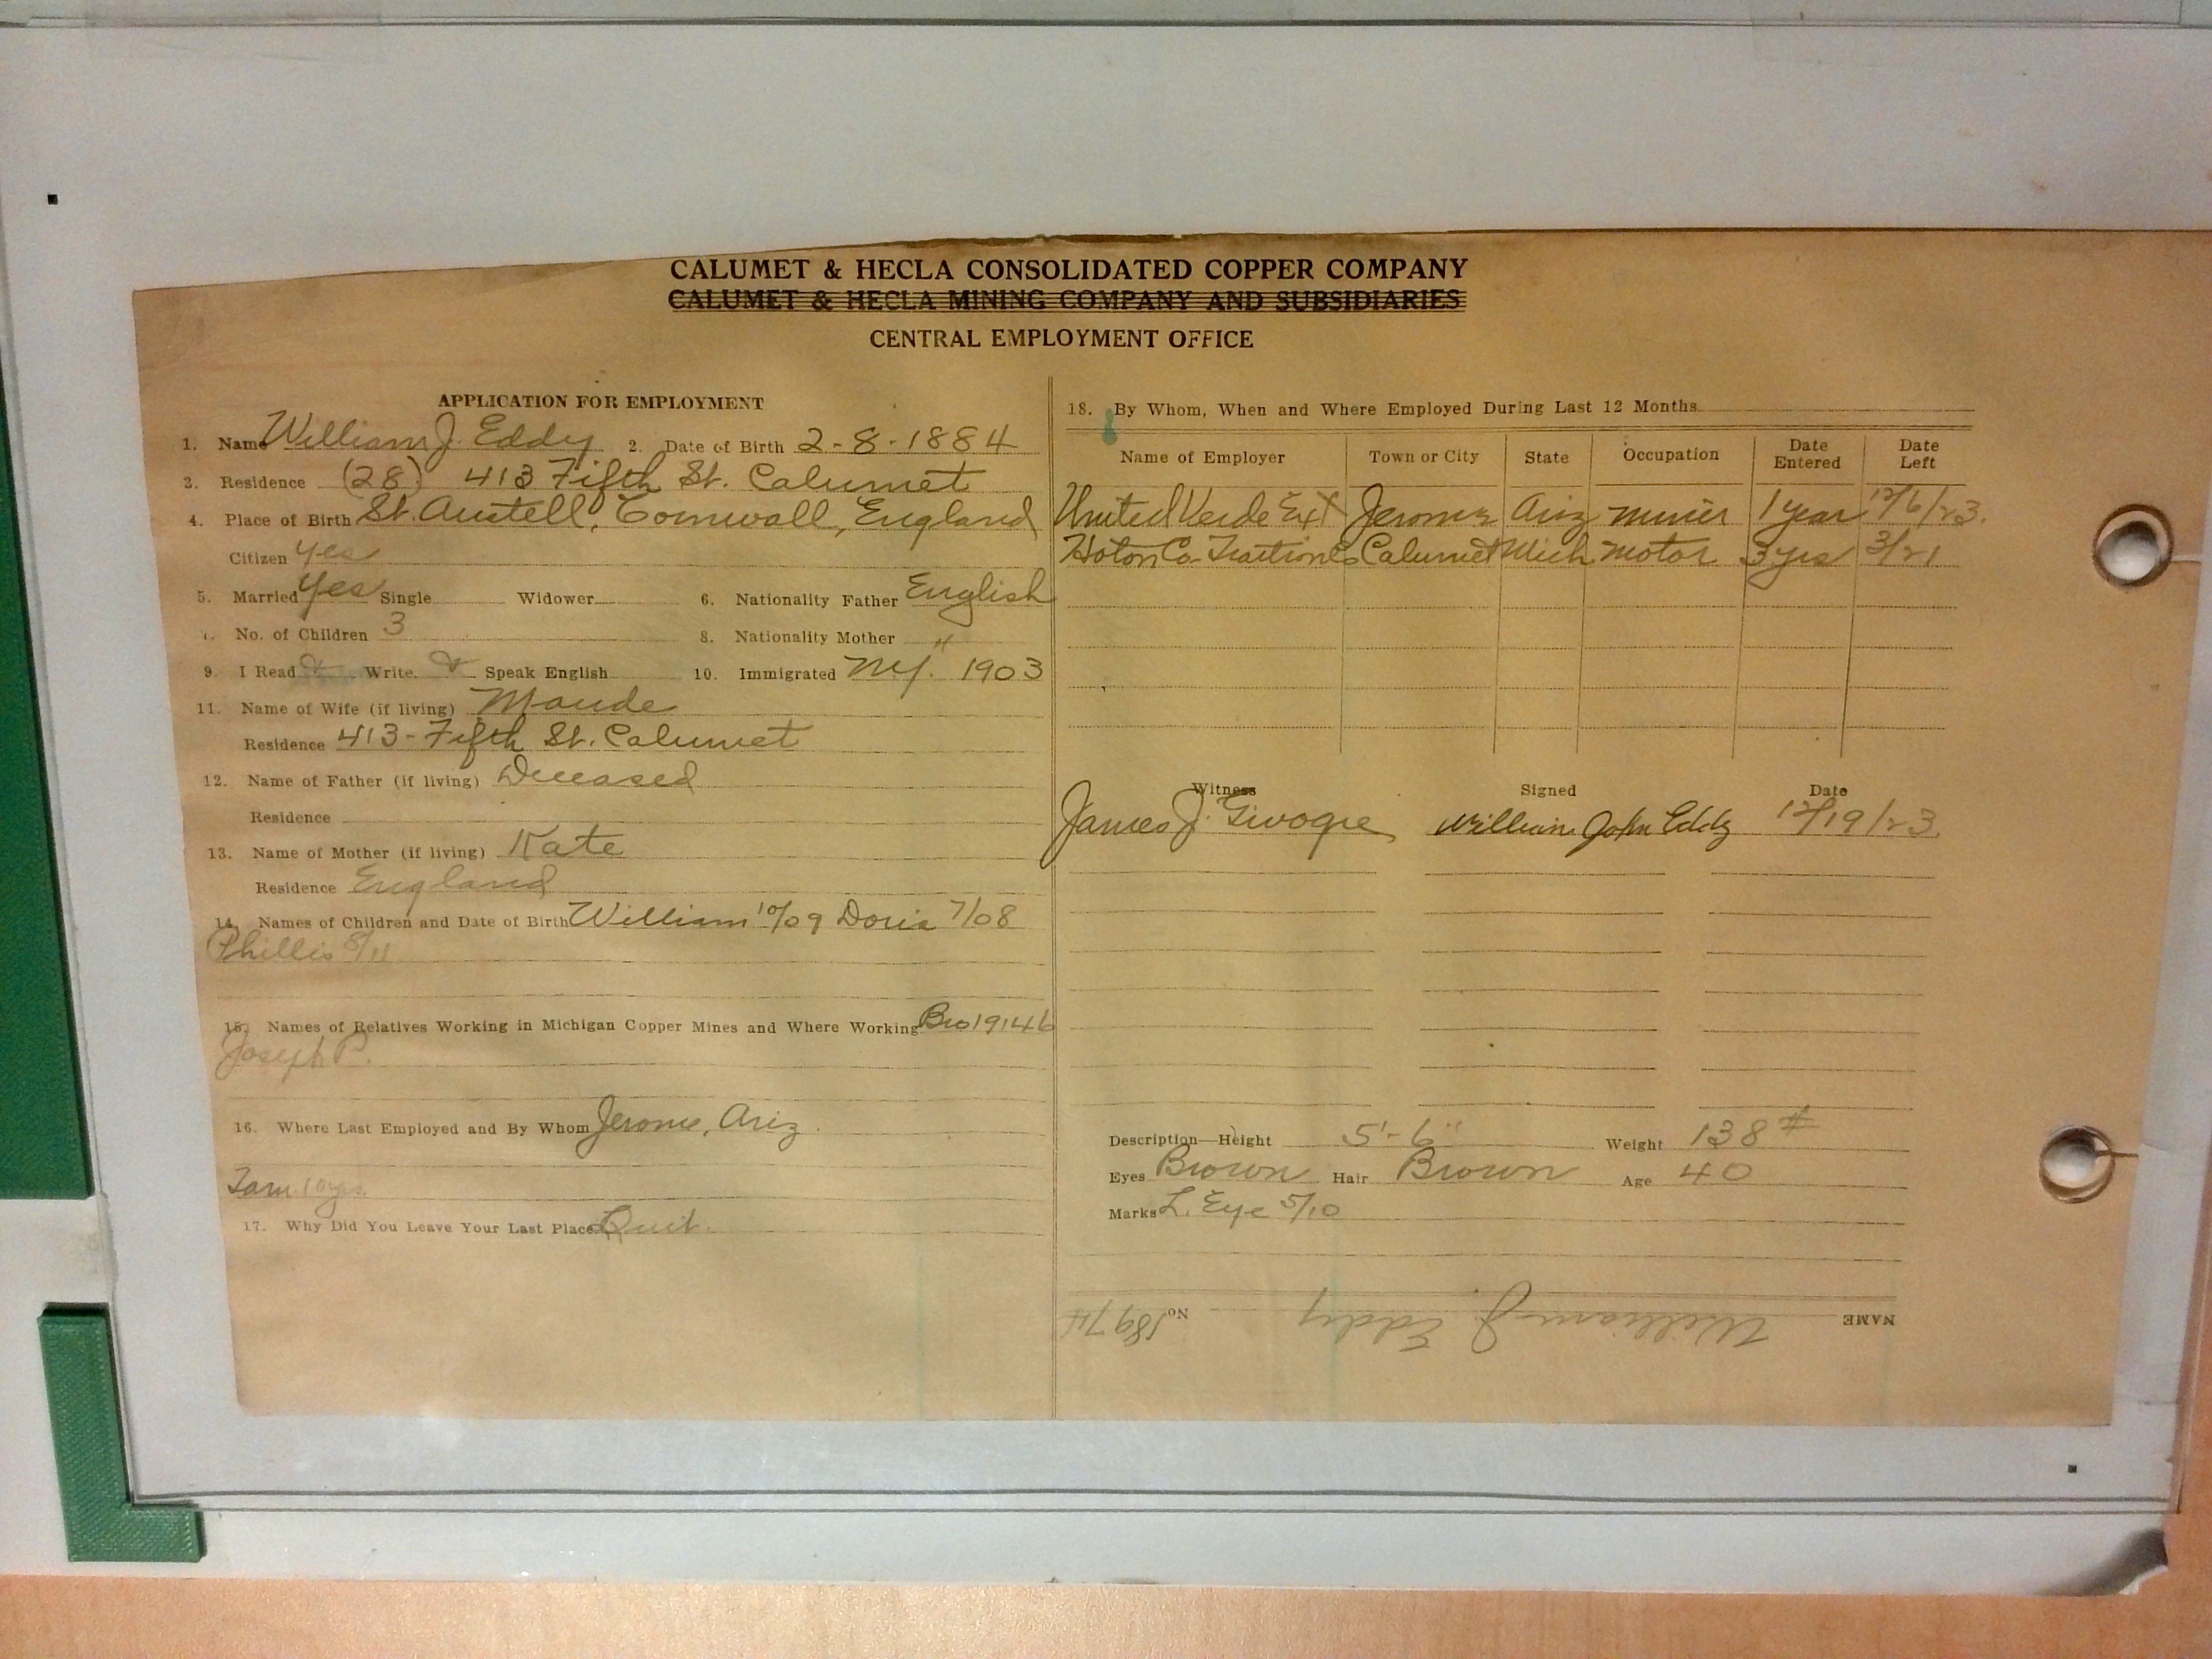 CALUMET & HECLA CONSOLIDATED COPPER COMPANY
CALUMET & HECLA MINING COMPANY AND SUBSIDIARIES
CENTRAL EMPLOYMENT OFFICE
APPLICATION FOR EMPLOYMENT
1. Name William J. Eddy 2. Date of Birth 2-8-1884
3. Residence (28) 413 Fifth St. Calumet
4. Place of Birth St. Austell, Cornwall, England
Citizen yes
5. Married yes Single Widower 6. Nationality Father English
7. No. of Children 3 8. Nationality Mother "
9. I Read & Write & Speak English 10. Immigrated N.Y. 1903
11. Name of Wife (if living) Maude
Residence 413 - Fifth St. Calumet
12. Name of Father (if living) Deceased
Residence
13. Name of Mother (if living) Kate
Residence England
14. Names of Children and Date of Birth William 10/09 Doris 7/08
Phillis 8/11
15. Names of Relatives Working in Michigan Copper Mines and Where Working Bro 19146
Joseph P.
16. Where Last Employed and By Whom Jerome, Ariz.
Tam. 10 yrs.
17. Why Did You Leave Your Last Place Quit.
18. By Whom, When and Where Employed During Last 12 Months
Name of Employer Town or City State Occupation Date Entered Date Left
United Verde Ext Jerome Ariz miner 1 year 12/6/23.
Hoton Co. Traction Co Calumet Mich motor 3 yrs 3/21
Witness Signed Date
James J. William John Eddy 12/19/23.
Description—Height 5'-6" Weight 138#
Eyes Brown Hair Brown Age 40
Marks L. Eye 5/10
NAME William J. Eddy No. 18974